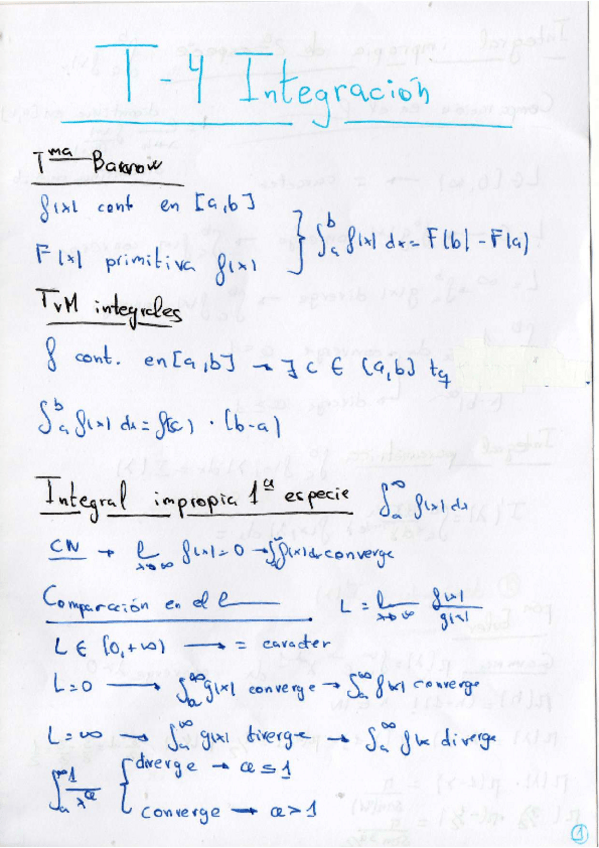 T-4 Integración
Tma Barrow
f(x) cont en [a,b]
F(x) primitiva f(x) } ∫ₐᵇ f(x) dx = F(b) - F(a)
TVM integrales
f cont. en [a,b] → ∃ c ∈ [a,b] tq
∫ₐᵇ f(x) dx = f(c) · (b-a)
Integral impropia 1ª especie ∫ₐ^∞ f(x) dx
CN → l x→∞ f(x) = 0 → ∫ f(x) dx converge
Comparación en el l L = l x→∞ f(x)/g(x)
L ∈ (0,+∞) → = caracter
L=0 → ∫ₐ^∞ g(x) converge → ∫ₐ^∞ f(x) converge
L=∞ → ∫ₐ^∞ g(x) diverge → ∫ₐ^∞ f(x diverge
∫ₐ^∞ 1/x^α { diverge → α ≤ 1
converge → α > 1
1